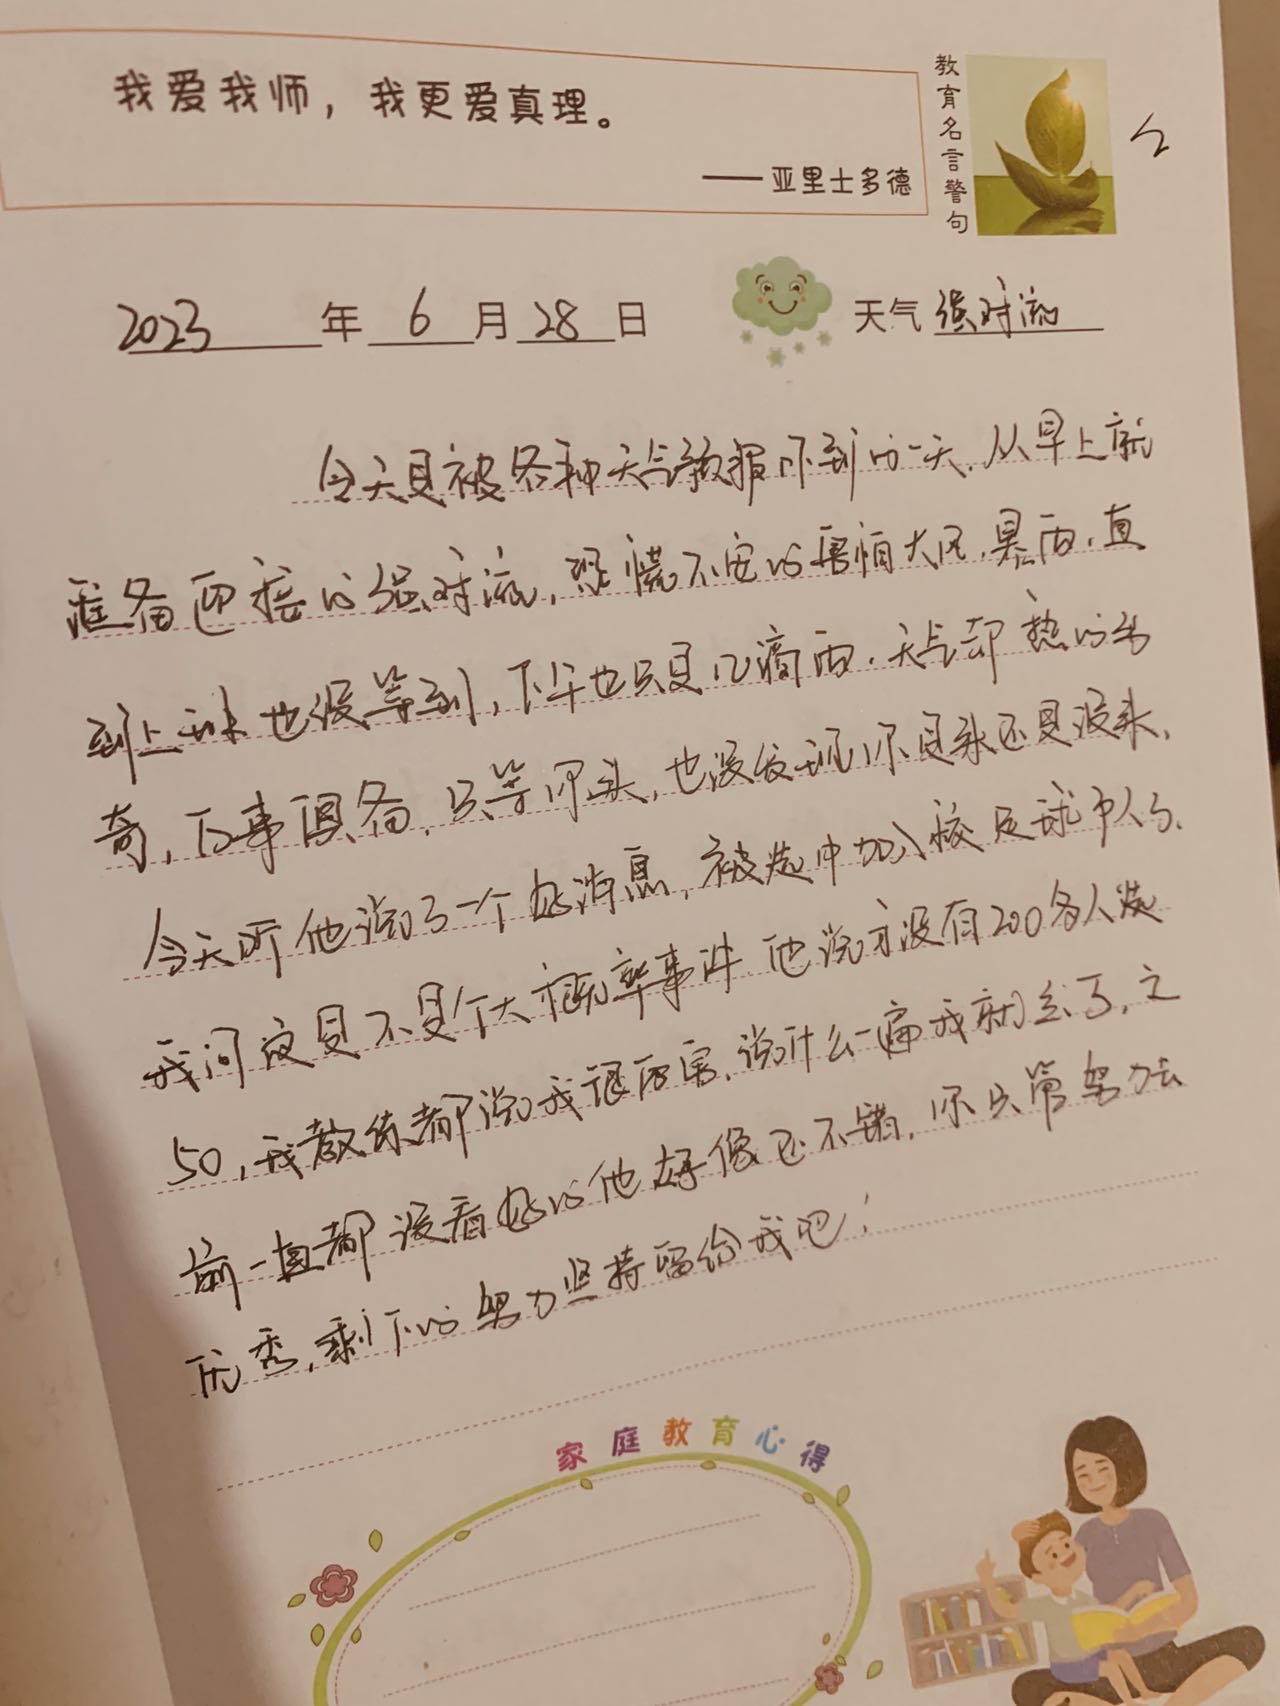 我爱我师，我更爱真理。
——亚里士多德
教育名言警句
2023年6月28日 天气 强对流
今天是被各种天气预报吓到的一天，从早上就
准备迎接的强对流，恐慌不安的害怕大风，暴雨，直
到上课也没等到，下午也只是几滴雨，天气却热的出
奇，万事俱备，只等你来，也没发现你是来还是没来，
今天听他说了一个好消息，被选中加入校足球队了，
我问这是不是个大概率事件，他说才没有200多人选
50，我教练都说我很厉害，说什么一遍我就会了，之
前一直都没看好的他好像还不错，你只管努力去
优秀，剩下的努力坚持留给我吧！
家庭教育心得